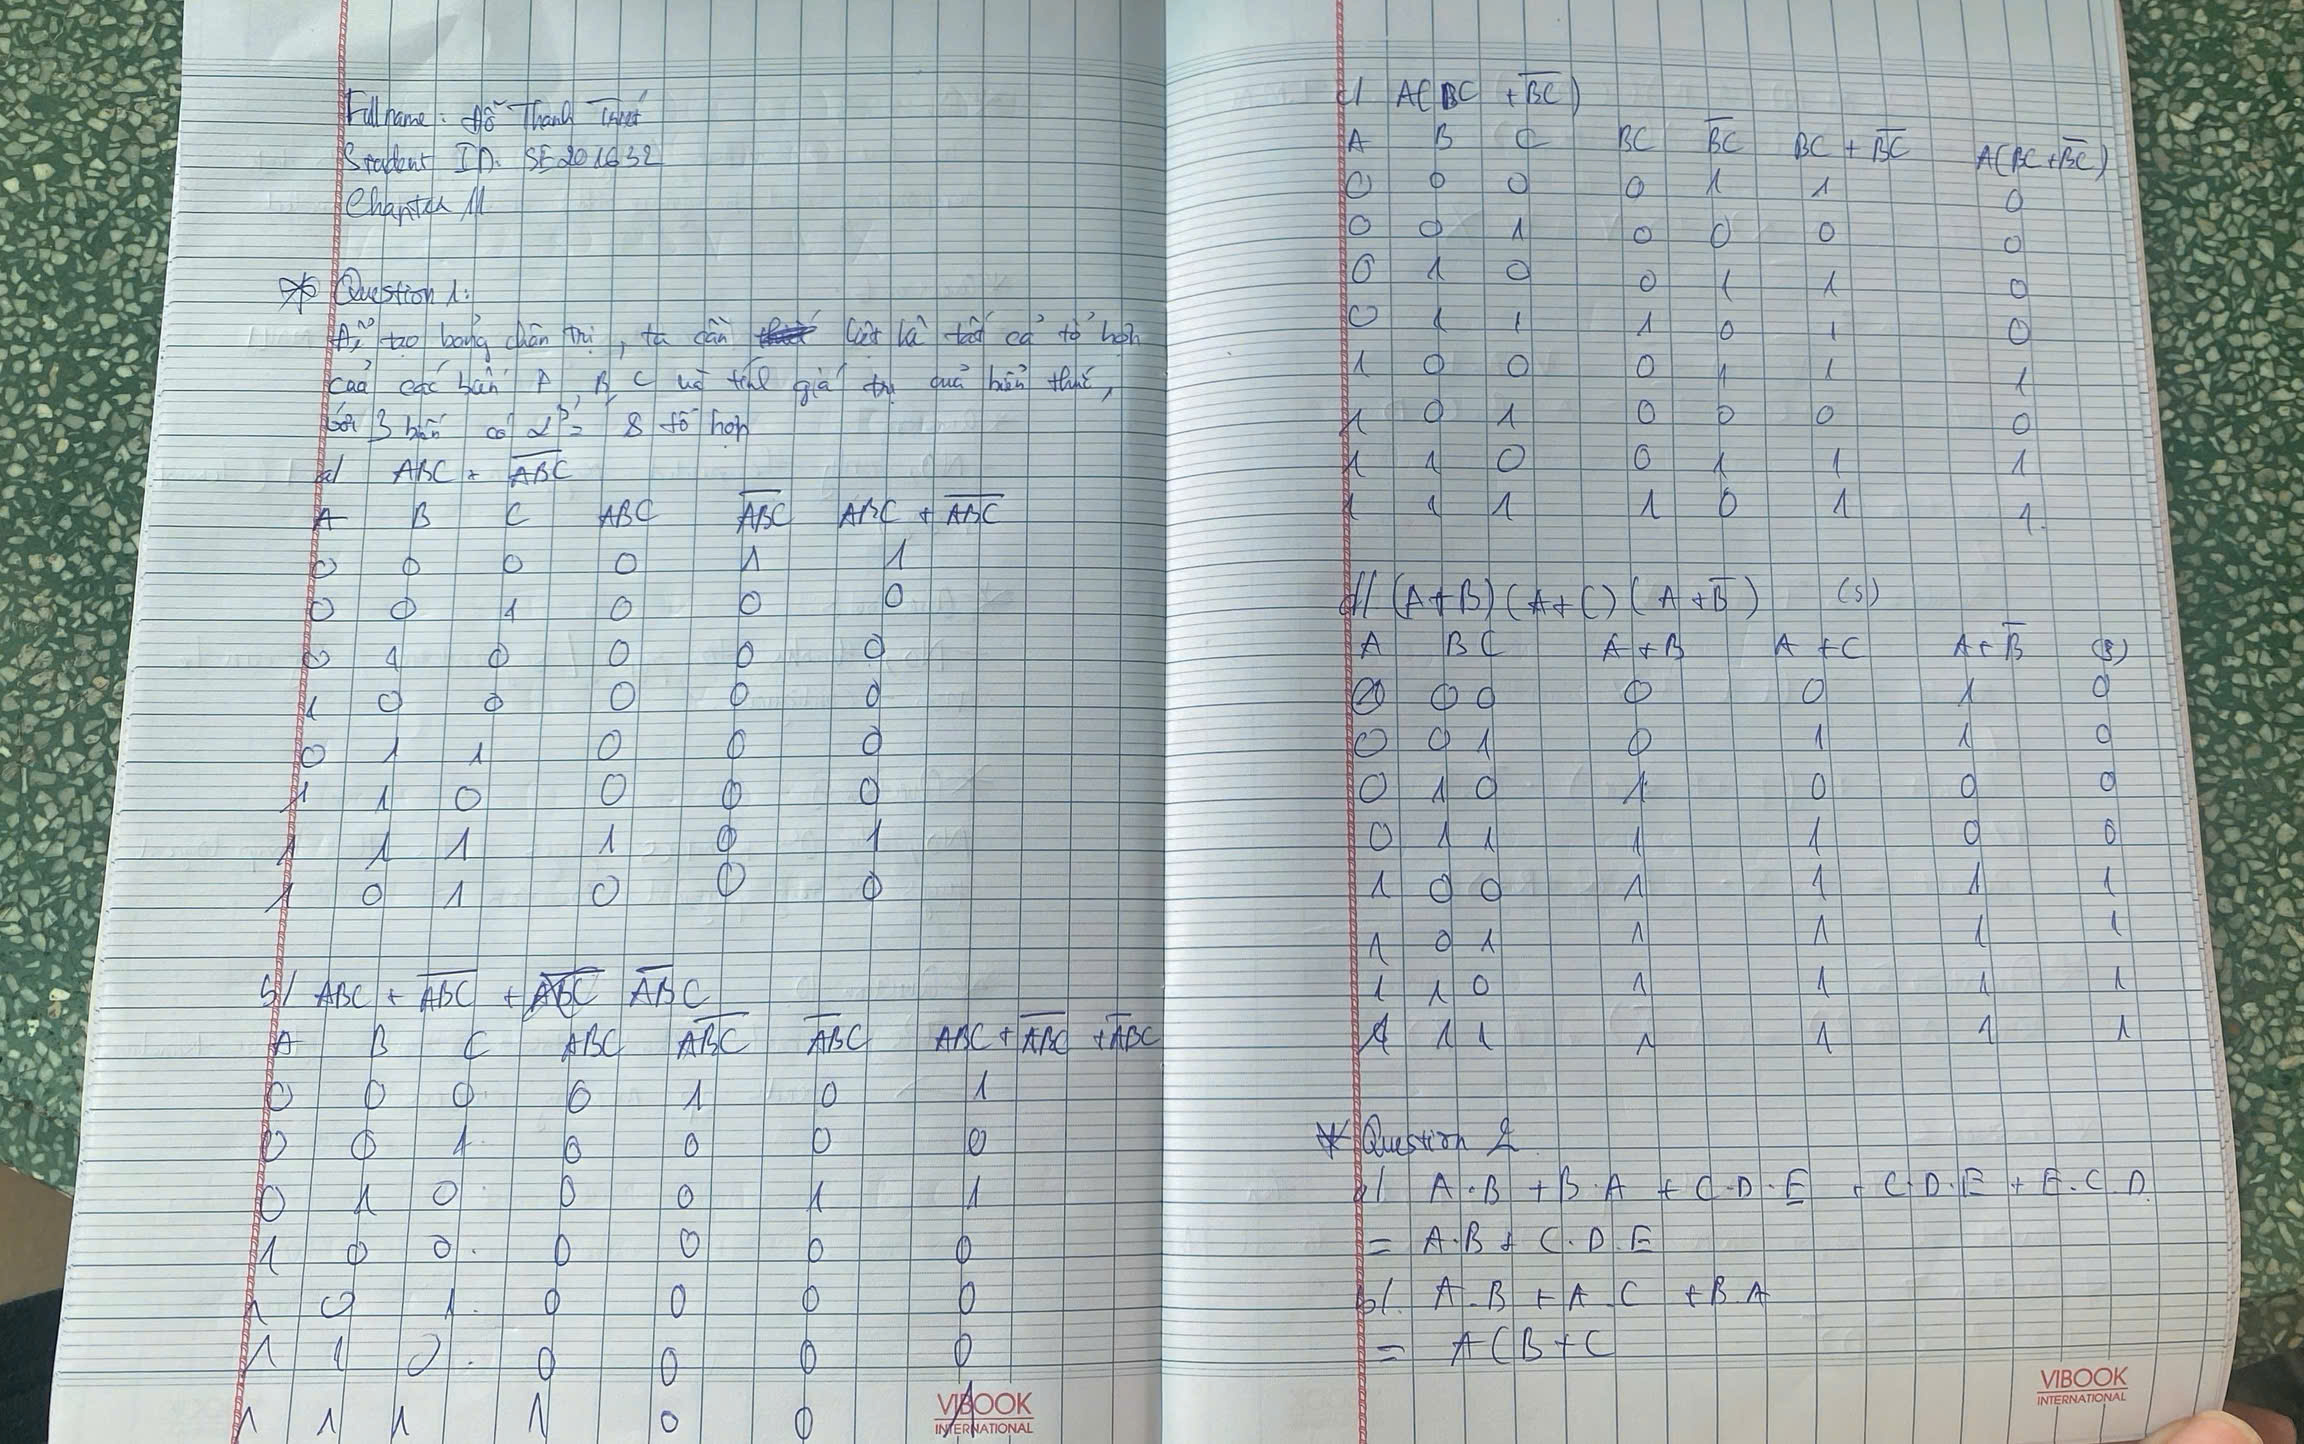 Full name: Đỗ Thanh Triết
Student ID: SE201632
Chapter 11
* Question 1:
Để tạo bảng chân trị, ta cần liệt kê tất cả tổ hợp
của các biến A, B, C và tính giá trị quả biến thức,
với 3 biến có 2³ = 8 tổ hợp
a/ ABC + A̅B̅C̅
A B C ABC A̅B̅C̅ ABC + A̅B̅C̅
0 0 0 0 1 1
0 0 1 0 0 0
0 1 0 0 0 0
1 0 0 0 0 0
0 1 1 0 0 0
1 1 0 0 0 0
1 1 1 1 0 1
1 0 1 0 0 0
b/ ABC + A̅B̅C̅ + A̅BC
A B C ABC AB̅C̅ A̅BC ABC + A̅B̅C̅ + A̅BC
0 0 0 0 1 0 1
0 0 1 0 0 0 0
0 1 0 0 0 1 1
1 0 0 0 0 0 0
1 0 1 0 0 0 0
1 1 0 0 0 0 0
1 1 1 1 0 0 1
VIBOOK
INTERNATIONAL
c/ A(BC + B̅C̅)
A B C BC B̅C̅ BC + B̅C̅ A(BC+B̅C̅)
0 0 0 0 1 1 0
0 0 1 0 0 0 0
0 1 0 0 1 1 0
0 1 1 1 0 1 0
1 0 0 0 1 1 1
1 0 1 0 0 0 0
1 1 0 0 1 1 1
1 1 1 1 0 1 1
d/ (A+B)(A+C)(A+B̅) (S)
A B C A+B A+C A+B̅ (S)
0 0 0 0 0 1 0
0 0 1 0 1 1 0
0 1 0 1 0 0 0
0 1 1 1 1 0 0
1 0 0 1 1 1 1
1 0 1 1 1 1 1
1 1 0 1 1 1 1
1 1 1 1 1 1 1
* Question 2
a/. A.B + B.A + C.D.E + C.D.E + E.C.D.
= A.B + C.D.E
b/. A.B + A.C + B.A
= A(B+C
VIBOOK
INTERNATIONAL